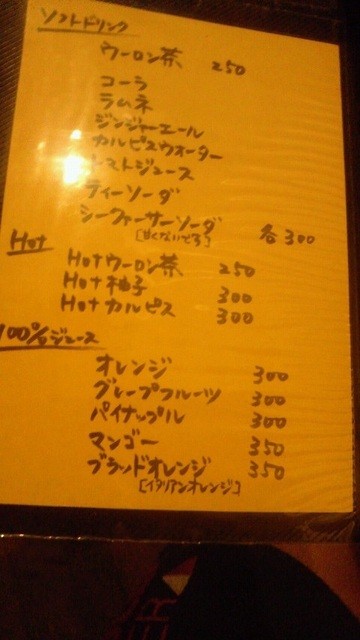 ソフトドリンク
ウーロン茶 250
コーラ
ラムネ
ジンジャーエール
カルピスウォーター
トマトジュース
ティーソーダ
シークァーサーソーダ
[甘くないです] 各300
Hot
Hotウーロン茶 250
Hot柚子 300
Hotカルピス 300
100%ジュース
オレンジ 300
グレープフルーツ 300
パイナップル 300
マンゴー 350
ブラッドオレンジ 350
[イタリアンオレンジ]